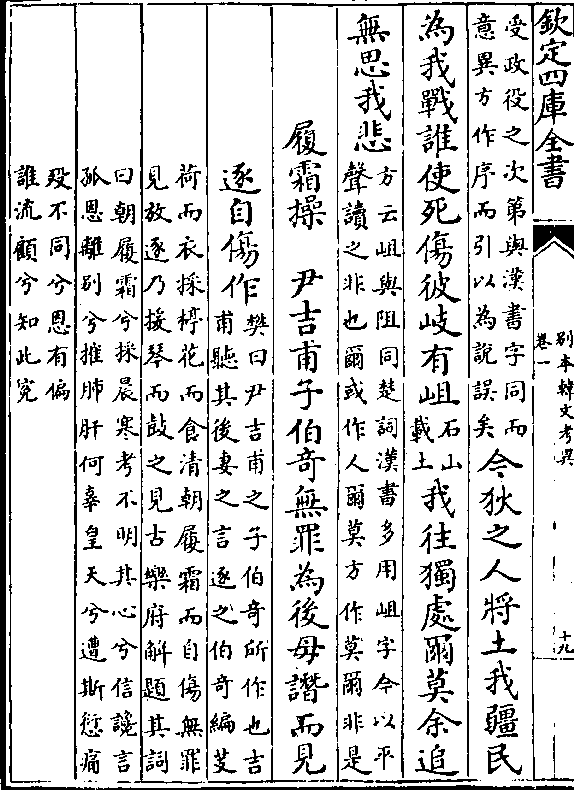 欽定四庫全書
別本韓文考異
卷一
十九
受政役之次第與漢書字同而
意異方作序而引以為說誤矣
今狄之人將土我疆民
為我戰誰使死傷彼岐有岨
石山
載土
我往獨處爾莫余追
無思我悲
方云岨與阻同楚詞漢書多用岨字今以平
聲讀之非也爾或作人爾莫方作莫爾非是
履霜操 尹吉甫子伯奇無罪為後母譖而見
逐自傷作
樊曰尹吉甫之子伯奇所作也吉
甫聽其後妻之言逐之伯奇編芰
荷而衣採楟花而食清朝履霜而自傷無罪
見放逐乃援琴而鼓之見古樂府解題其詞
曰朝履霜兮採晨寒考不明其心兮信讒言
孤恩離別兮摧肺肝何辜皇天兮遭斯愆痛
歿不同兮恩有偏
誰流顧兮知此寃